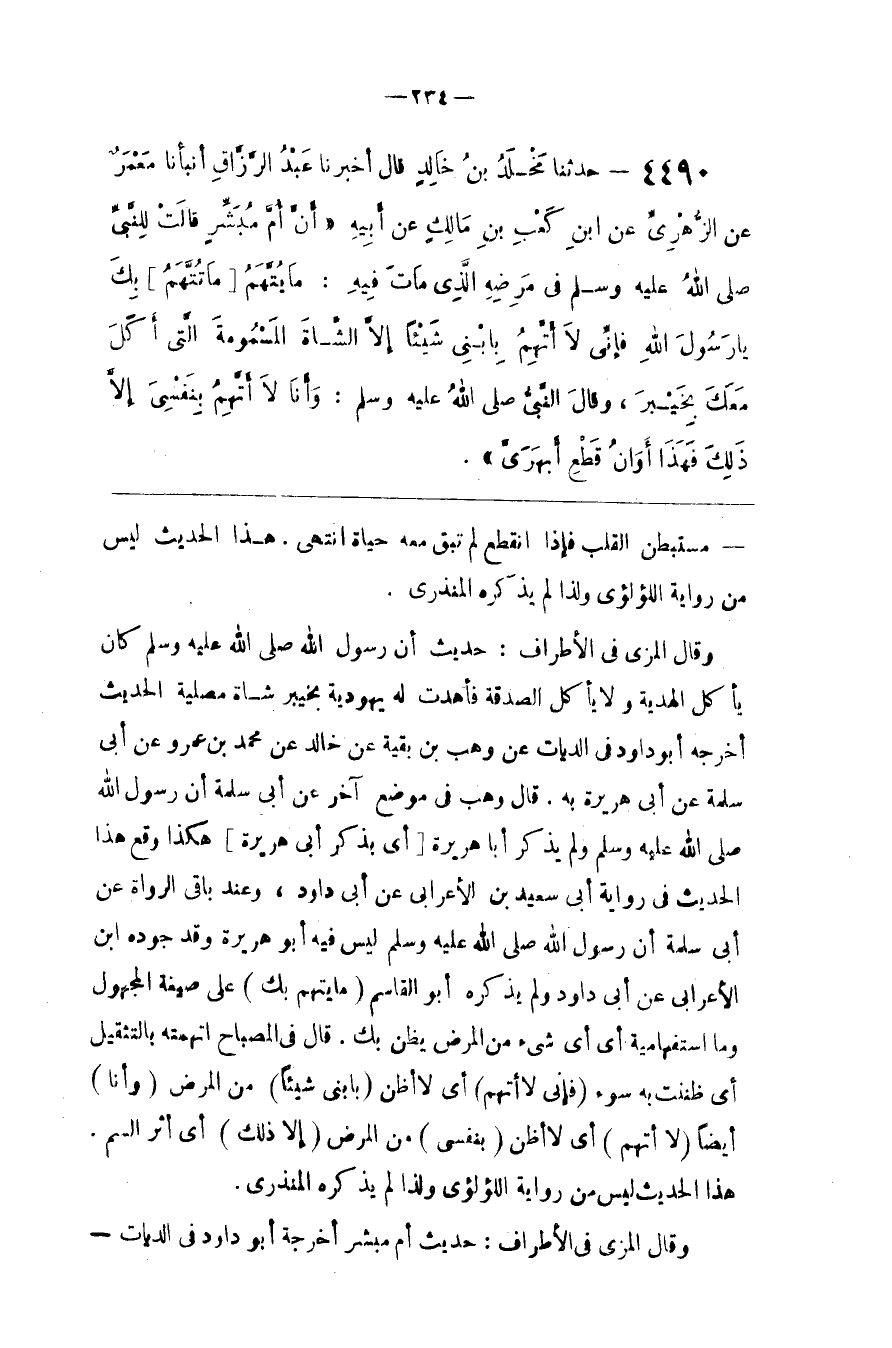 — ٢٣٤ —
٤٤٩٠ — حدثنا مَخْلَدُ بنُ خَالِدٍ قال أخبرنا عَبْدُ الرَّزَّاقِ أنبأنا مَعْمَرٌ
عن الزُّهْرِىِّ عن ابنِ كَعْبِ بنِ مَالِكٍ عن أَبِيهِ « أَنَّ أُمَّ مُبَشِّرٍ قالَتْ لِلنَّبىِّ
صلى اللهُ عليه وسلم فى مَرَضِهِ الَّذِى مَاتَ فِيهِ : مَا يُتَّهَمُ [ مَا تُتَّهَمُ ] بِكَ
يا رَسُولَ اللهِ فإنِّى لاَ أَتَّهِمُ بِابْنِى شَيْئًا إلاَّ الشَّاةَ المَسْمُومةَ الَّتى أَكَلَ
مَعَكَ بِخَيْبَرَ ، وقالَ النَّبىُّ صلى اللهُ عليه وسلم : وَأَنَا لاَ أَتَّهِمُ بِنَفْسِىَ إلاَّ
ذَلِكَ فَهَذَا أَوَانُ قَطْعِ أَبهَرَىَّ » .
— مستبطن القلب فإذا انقطع لم تبق معه حياة انتهى . هذا الحديث ليس
من رواية اللؤلؤى ولذا لم يذكره المنذرى .
وقال المزى فى الأطراف : حديث أن رسول الله صلى الله عليه وسلم كان
يأكل الهدية ولا يأكل الصدقة فأهدت له يهودية بخيبر شاة مصلية الحديث
أخرجه أبو داود فى الديات عن وهب بن بقية عن خالد عن محمد بن عمرو عن أبى
سلمة عن أبى هريرة به . قال وهب فى موضع آخر عن أبى سلمة أن رسول الله
صلى الله عليه وسلم ولم يذكر أبا هريرة [ أى بذكر أبى هريرة ] هكذا وقع هذا
الحديث فى رواية أبى سعيد بن الأعرابى عن أبى داود ، وعند باقى الرواة عن
أبى سلمة أن رسول الله صلى الله عليه وسلم ليس فيه أبو هريرة وقد جوده ابن
الأعرابى عن أبى داود ولم يذكره أبو القاسم ( ما يتهم بك ) على صيغة المجهول
وما استفهامية أى أى شىء من المرض يظن بك . قال فى المصباح اتهمته بالتثقيل
أى ظننت به سوء ( فإنى لا أتهم ) أى لا أظن ( بابنى شيئًا ) من المرض ( وأنا )
أيضًا ( لا أتهم ) أى لا أظن ( بنفسى ) من المرض ( إلا ذلك ) أى أثر السم .
هذا الحديث ليس من رواية اللؤلؤى ولذا لم يذكره المنذرى .
وقال المزى فى الأطراف : حديث أم مبشر أخرجة أبو داود فى الديات —